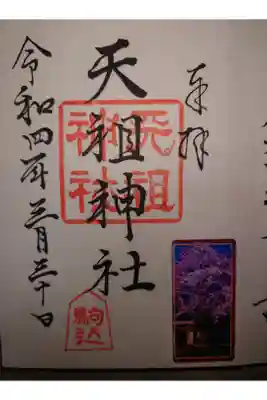 奉拝
天祖神社
天祖
神社
駒込
令和四年三月三十日